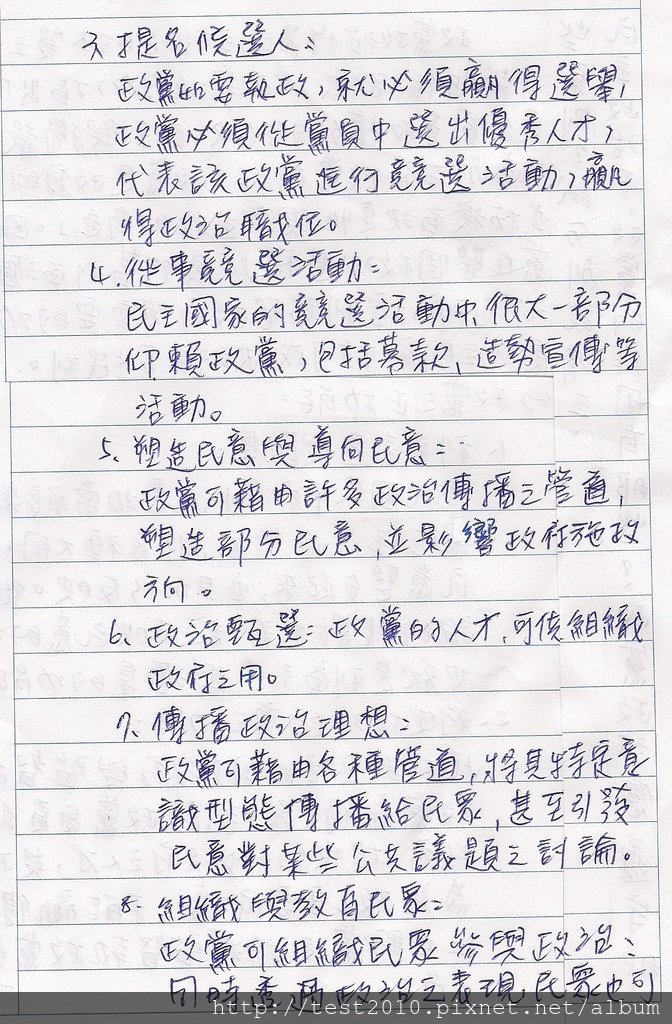 3.提名候選人：
政黨如要執政，就必須贏得選舉，
政黨必須從黨員中選出優秀人才，
代表該政黨進行競選活動，贏
得政治職位。
4.從事競選活動：
民主國家的競選活動中，很大一部分
仰賴政黨，包括募款、造勢宣傳等
活動。
5.塑造民意與導向民意：
政黨可藉由許多政治傳播之管道，
塑造部分民意，並影響政府施政
方向。
6.政治甄選：政黨的人才，可供組織
政府之用。
7.傳播政治理想：
政黨可藉由各種管道，將其特定意
識型態傳播給民眾，甚至引發
民意對某些公共議題之討論。
8.組織與教育民眾：
政黨可組織民眾參與政治；
同時透過政治之表現，民眾也可
http://test2010.pixnet.net/album